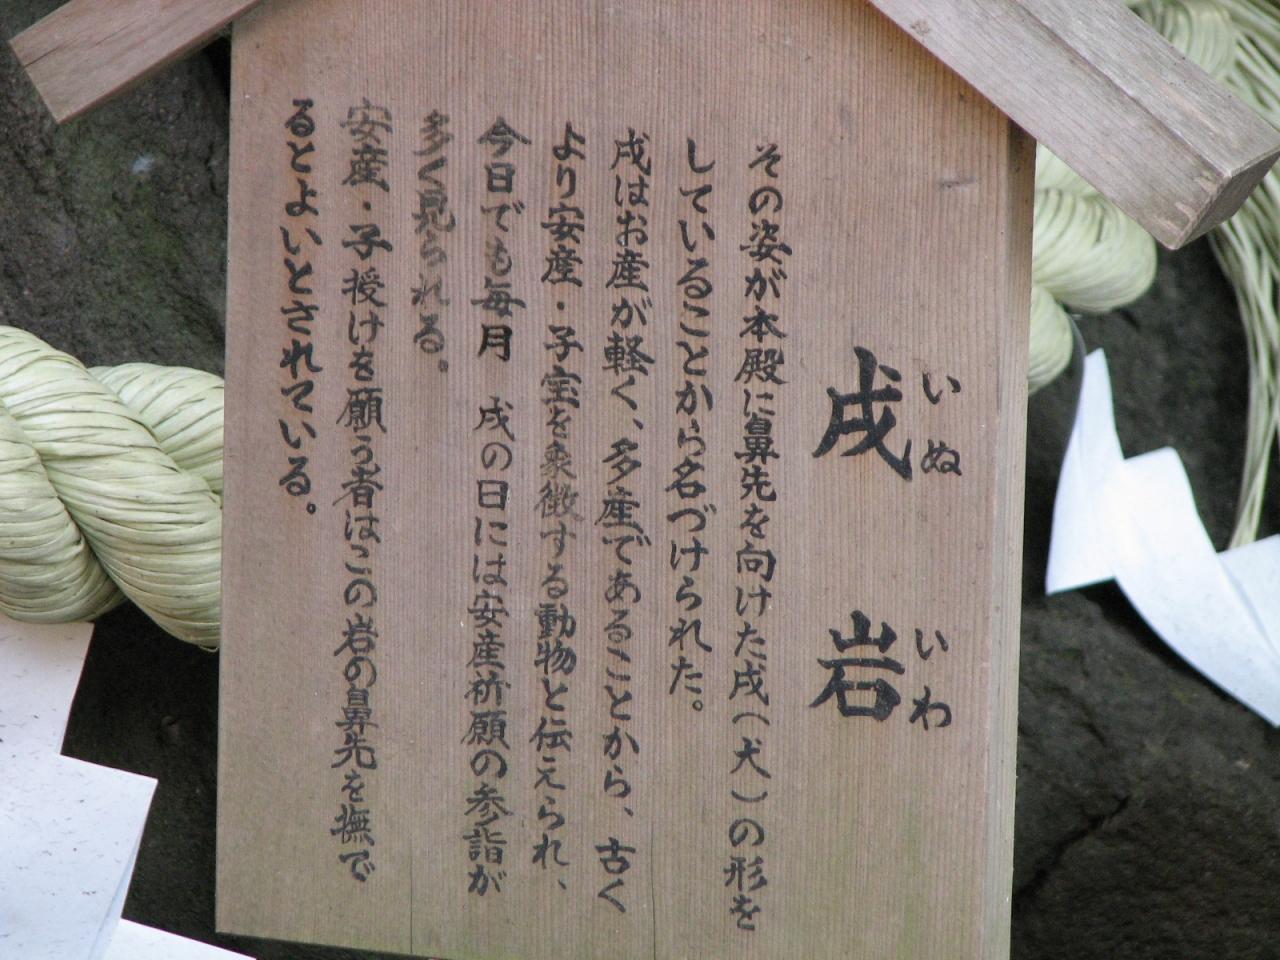 戌岩
いぬいわ
その姿が本殿に鼻先を向けた戌(犬)の形を
していることから名づけられた。
戌はお産が軽く、多産であることから、古く
より安産・子宝を象徴する動物と伝えられ、
今日でも毎月 戌の日には安産祈願の参詣が
多く見られる。
安産・子授けを願う者はこの岩の鼻先を撫で
るとよいとされている。